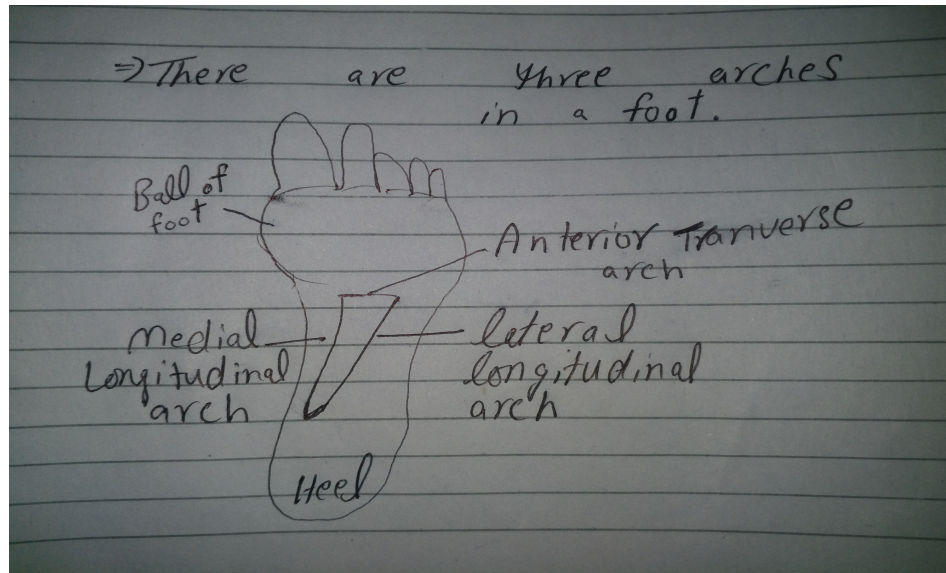 ⇒ There are three arches
in a foot.
Ball of
foot
Anterior Tranverse
arch
Medial
Longitudinal
arch
lateral
longitudinal
arch
Heel